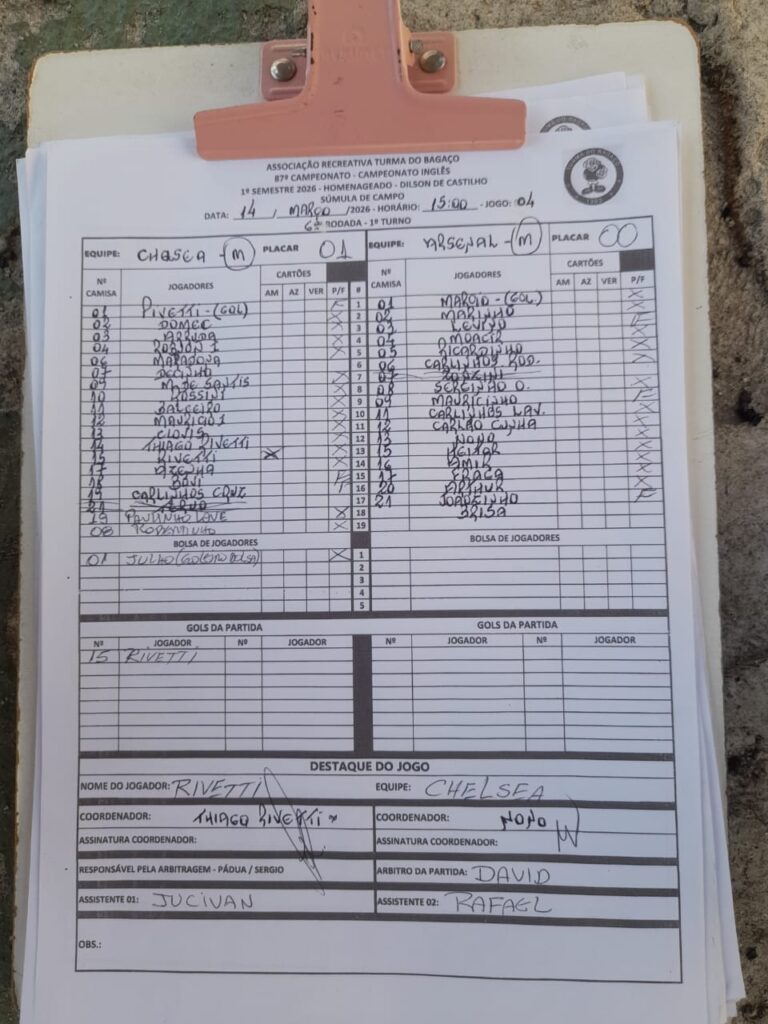 ASSOCIAÇÃO RECREATIVA TURMA DO BAGAÇO
87º CAMPEONATO - CAMPEONATO INGLÊS
1º SEMESTRE 2026 - HOMENAGEADO - DILSON DE CASTILHO
SÚMULA DE CAMPO
DATA: 14 / MARÇO /2026 - HORÁRIO: 15:00 - JOGO: 04
6ª RODADA - 1º TURNO
EQUIPE: CHELSEA - (M) PLACAR 01 EQUIPE: ARSENAL - (M) PLACAR 00
Nº CAMISA JOGADORES CARTÕES AM AZ VER P/F # Nº CAMISA JOGADORES CARTÕES AM AZ VER P/F
01 PIVETTI - (GOL) F 1 01 MARCIO - (GOL) X
02 DOMEC X 2 02 MARINHO X
03 ARRUDA X 3 03 LEVINO X
04 ROBSON 1 X 4 04 MOACIR X
06 MARADONA X 5 05 RICARDINHO X
07 DECINHO X 6 06 CARLINHOS ROD.
09 M. DE SANTIS X 7 07
10 ROSSINI X 8 08 SERGINHO O.
11 BALCEIRO X 9 09 MAURICINHO
12 MAURICIO 1 X 10 11 CARLINHOS LAV. X
13 CLOVIS X 11 12 CARLÃO CUNHA X
14 THIAGO RIVETTI X 12 13 NONO X
15 RIVETTI X X 13 15 HEITOR X
17 AZENHA X 14 16 AMIR X
18 BOVI F 15 17 FRAGA X
19 CARLINHOS CRUZ F 16 20 ARTHUR X
21 17 21 JOAOZINHO F
19 PAULINHO LAVE X 18 BRISA
08 ROBERTINHO X 19
BOLSA DE JOGADORES BOLSA DE JOGADORES
01 JULHO (GOLEIRO BOLSA) X 1
2
3
4
5
GOLS DA PARTIDA GOLS DA PARTIDA
Nº JOGADOR Nº JOGADOR Nº JOGADOR Nº JOGADOR
15 RIVETTI
DESTAQUE DO JOGO
NOME DO JOGADOR: RIVETTI EQUIPE: CHELSEA
COORDENADOR: THIAGO RIVETTI COORDENADOR: NONO
ASSINATURA COORDENADOR: ASSINATURA COORDENADOR:
RESPONSÁVEL PELA ARBITRAGEM - PÁDUA / SERGIO ARBITRO DA PARTIDA: DAVID
ASSISTENTE 01: JUCIVAN ASSISTENTE 02: RAFAEL
OBS.: